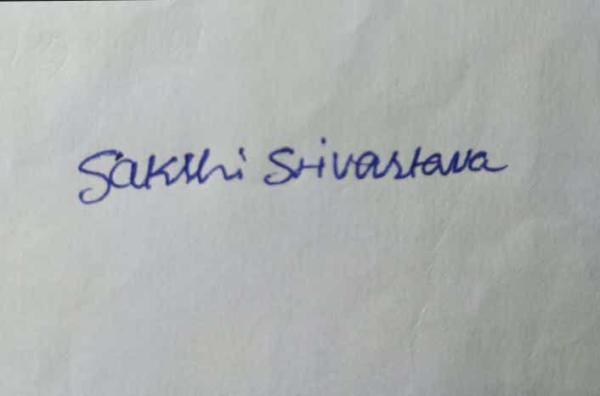 Sakshi Srivastava